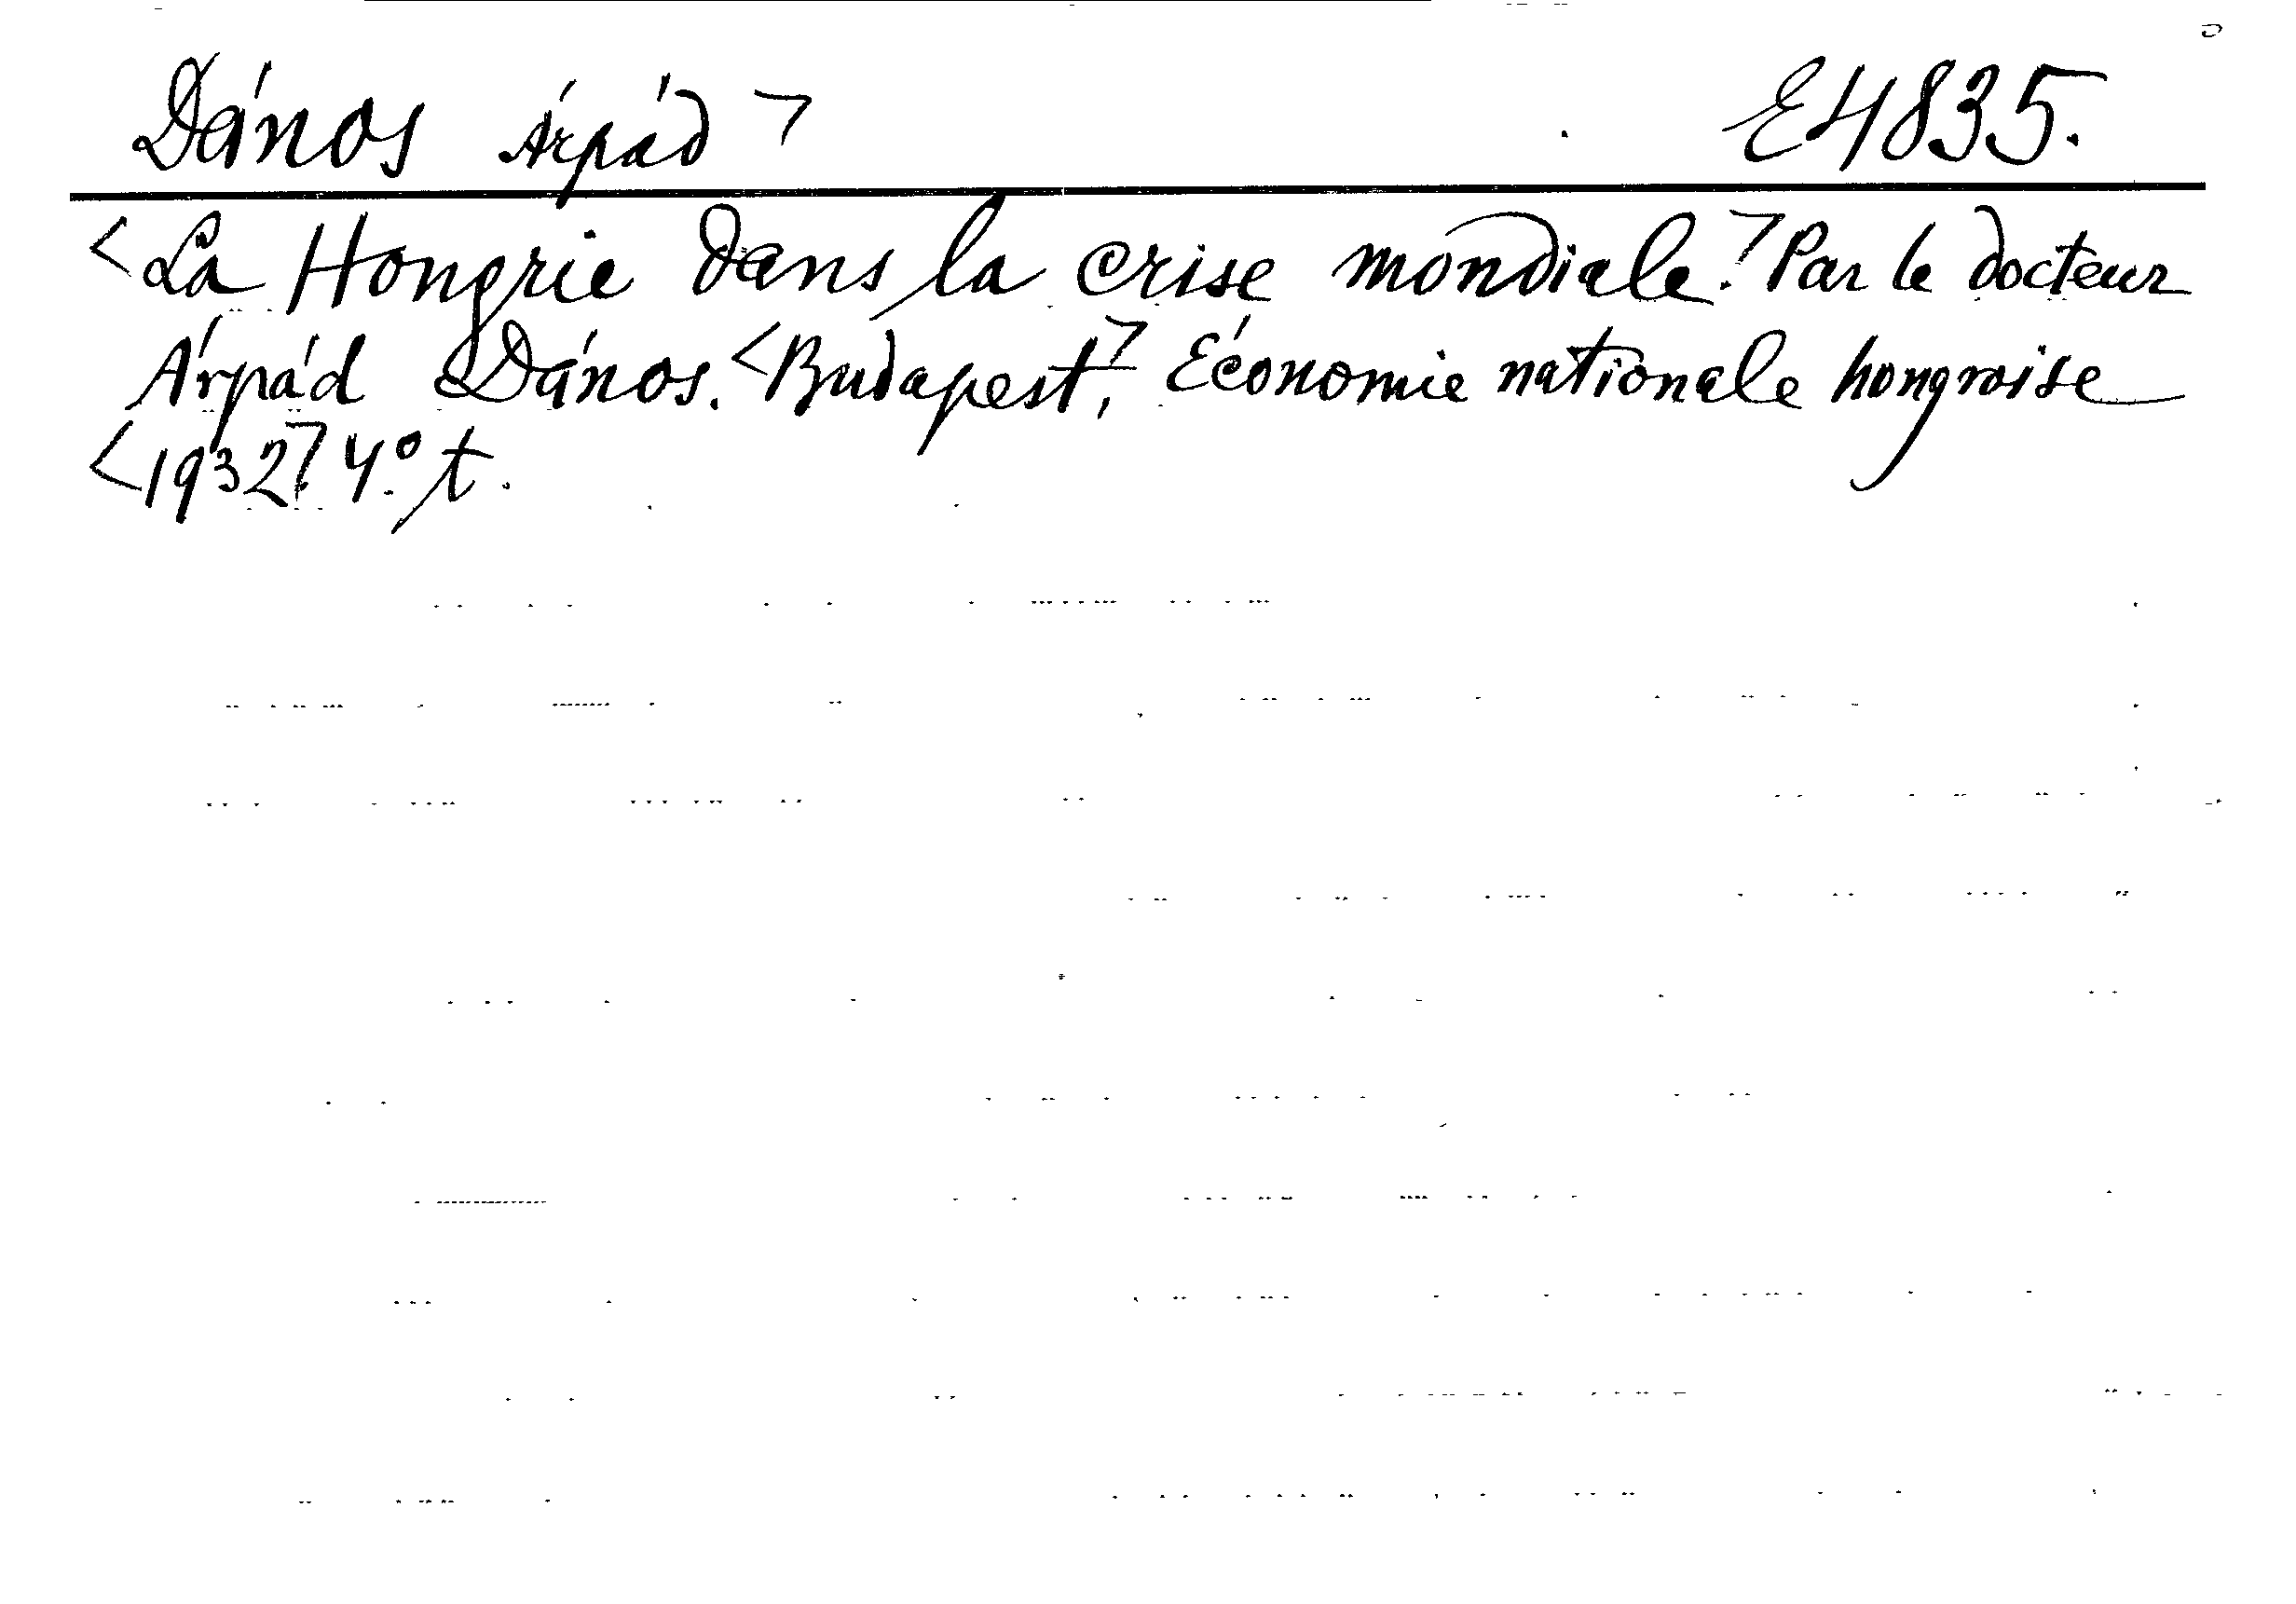 Dános Árpád > E4835.
<La Hongrie dans la crise mondiale.> Par le docteur
Árpád Dános. <Budapest,> Économie nationale hongroise
<1932.> 4.° t.